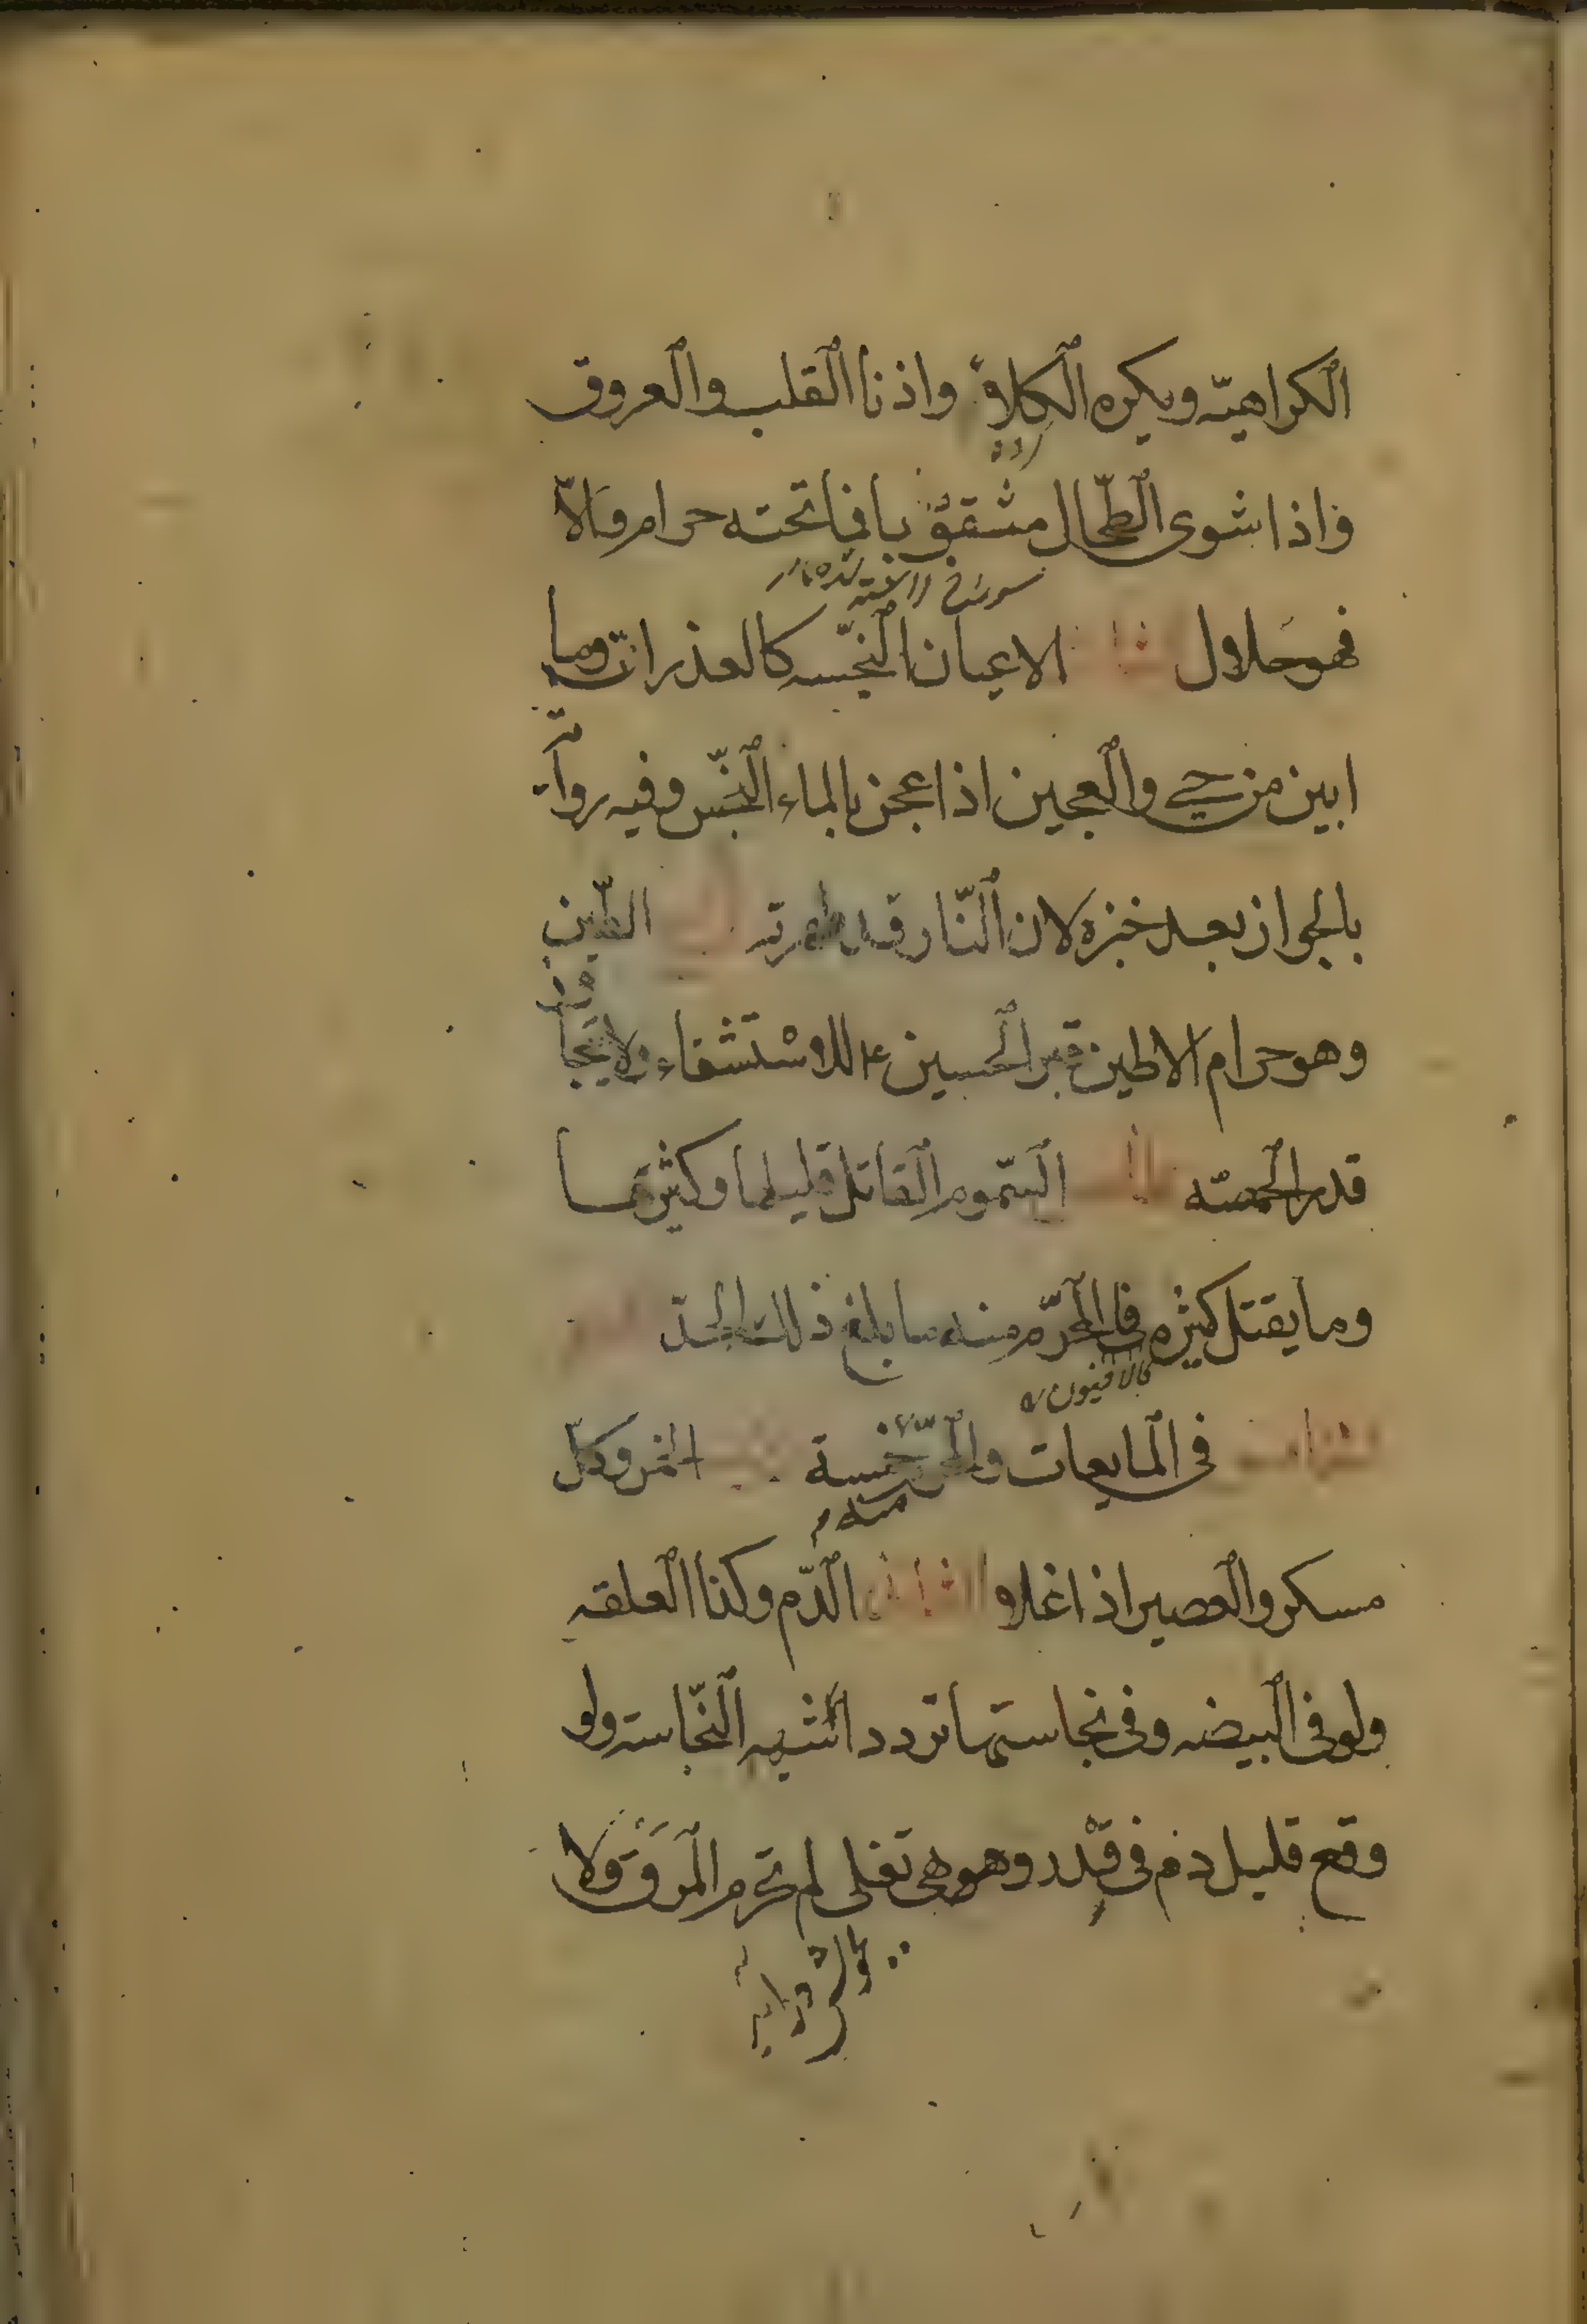 الكراهيّه ويكره الكلاء واذنا القلب والعروق
واذا شوى الطّحال مثقوبا فما تحته حرام والّا
فهو حلال الثالث الاعيان النّجسه كالعذرات وما
ابين من حي والعجين اذا عجن بالماء النّجس وفيه رواية
بالجواز بعد خبزه لان النّار قد طهرته الرابع الطّين
وهو حرام الا طين قبر الحسين ع للاستشفاء ولا يتجاوز
قدر الحمصّه الخامس السّموم القاتل قليلها وكثيرها
وما يقتل كثيره فالمحرّم منه ما بلغ ذلك الحدّ القسم
كالافيون
الخامس في المايعات والمحرّم منه خمسة الاول الخمر وكلّ
مسكر والعصير اذا غلا الثاني الدّم وكذا العلقه
ولو في البيضه وفي نجاستها تردد اشبهه النّجاسه ولو
وقع قليل دم في قدر وهو هي تغلي لم تحرم المرق ولا